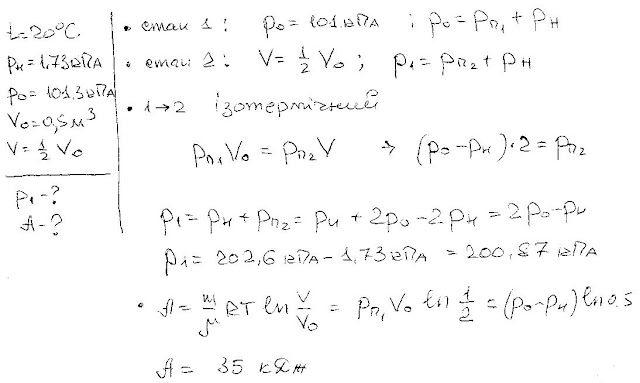 t=20°C.
Pн=1,73кПА
P0=101.3кПА
V0=0,5м³
V=½V0
P1-?
A-?
• стан 1: P0=101.3кПА ; P0=Pп1+Pн
• стан 2: V=½V0 ; P1=Pп2+Pн
• 1→2 ізотермічний
Pп1V0=Pп2V → (P0-Pн)·2=Pп2
P1=Pн+Pп2=Pн+2P0-2Pн=2P0-Pн
P1=202,6кПА-1,73кПА=200,87кПА
• A=m/μ RT ln V/V0=Pп1V0 ln ½=(P0-Pн)ln0.5
A=35 кДж